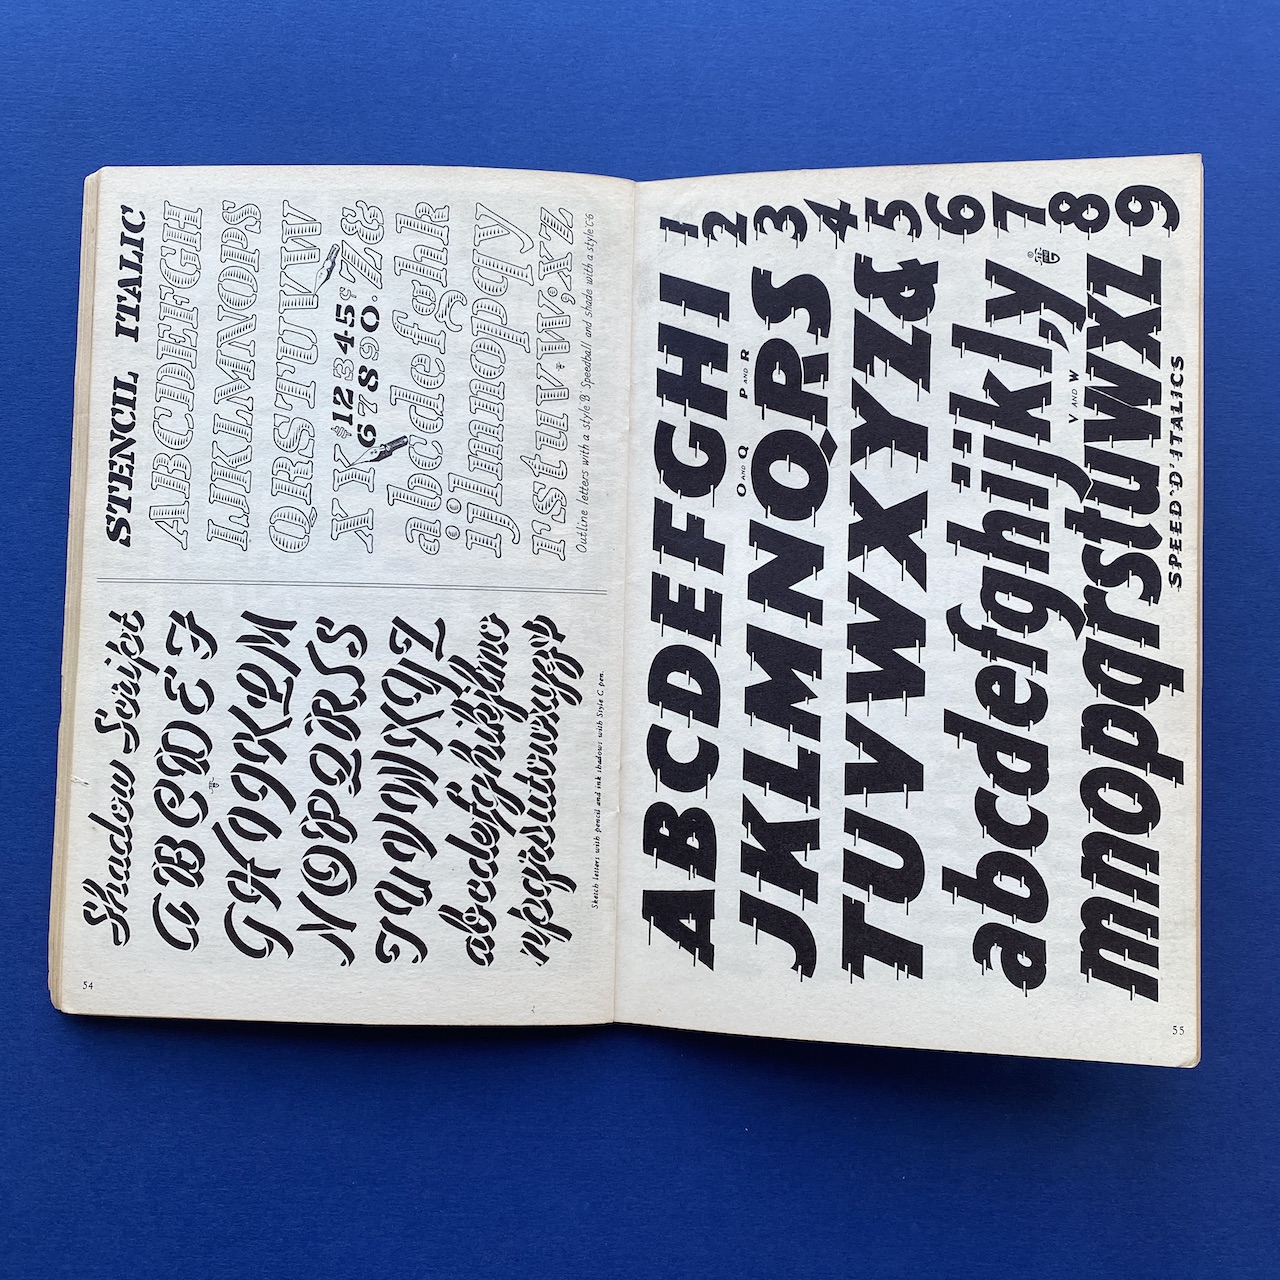 Shadow Script
A B C D E F
G H I J K L M
N O P Q R S S
T U V W X Y Z
abcdefghijklmno
pqrstuvwxyz
Sketch letters with pencil and ink shadows with Style C pen.
54
STENCIL ITALIC
ABCDEFGH
IJKLMNOPS
QRSTUVW
XY $12345¢ Z&
67890.
abcdefghk
ijlmnopqy
rstuvw;xz
Outline letters with a style B Speedball and shade with a style C-6
ABCDEFGHI
O AND Q P AND R
JKLMNQRS
TUVWXYZ&
abcdefghijkl,y
V AND W
mnopqrstuwxz
SPEED "D" ITALICS
1 2 3 4 5 6 7 8 9
55